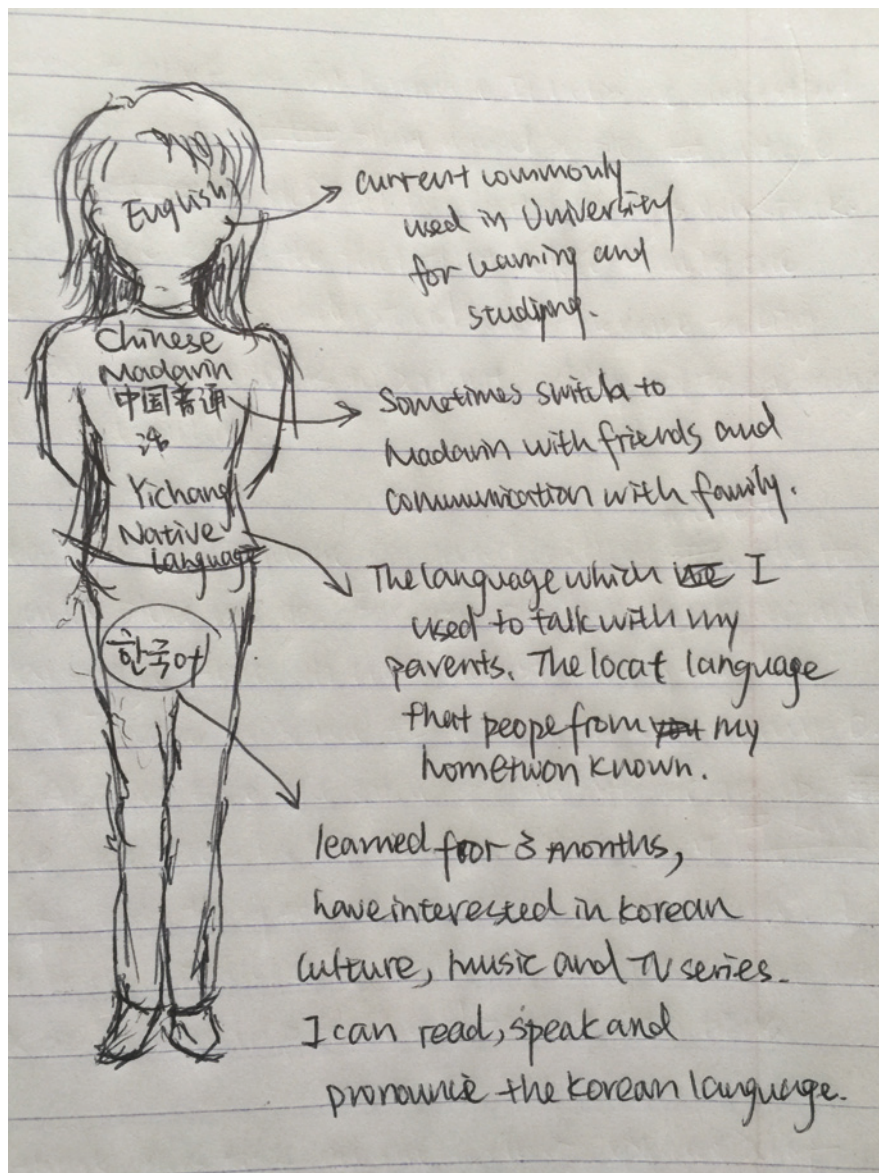 English
current commonly
used in University
for learning and
studiyng.
Chinese
Madarin
中国普通
话
Sometimes switch to
Madarin with friends and
communication with family.
Yichang
Native
language
The language which I
used to talk with my
parents. The local language
that peope from my
hometwon known.
한국어
learned for 3 months,
have interested in korean
culture, music and TV series.
I can read, speak and
pronounce the korean language.